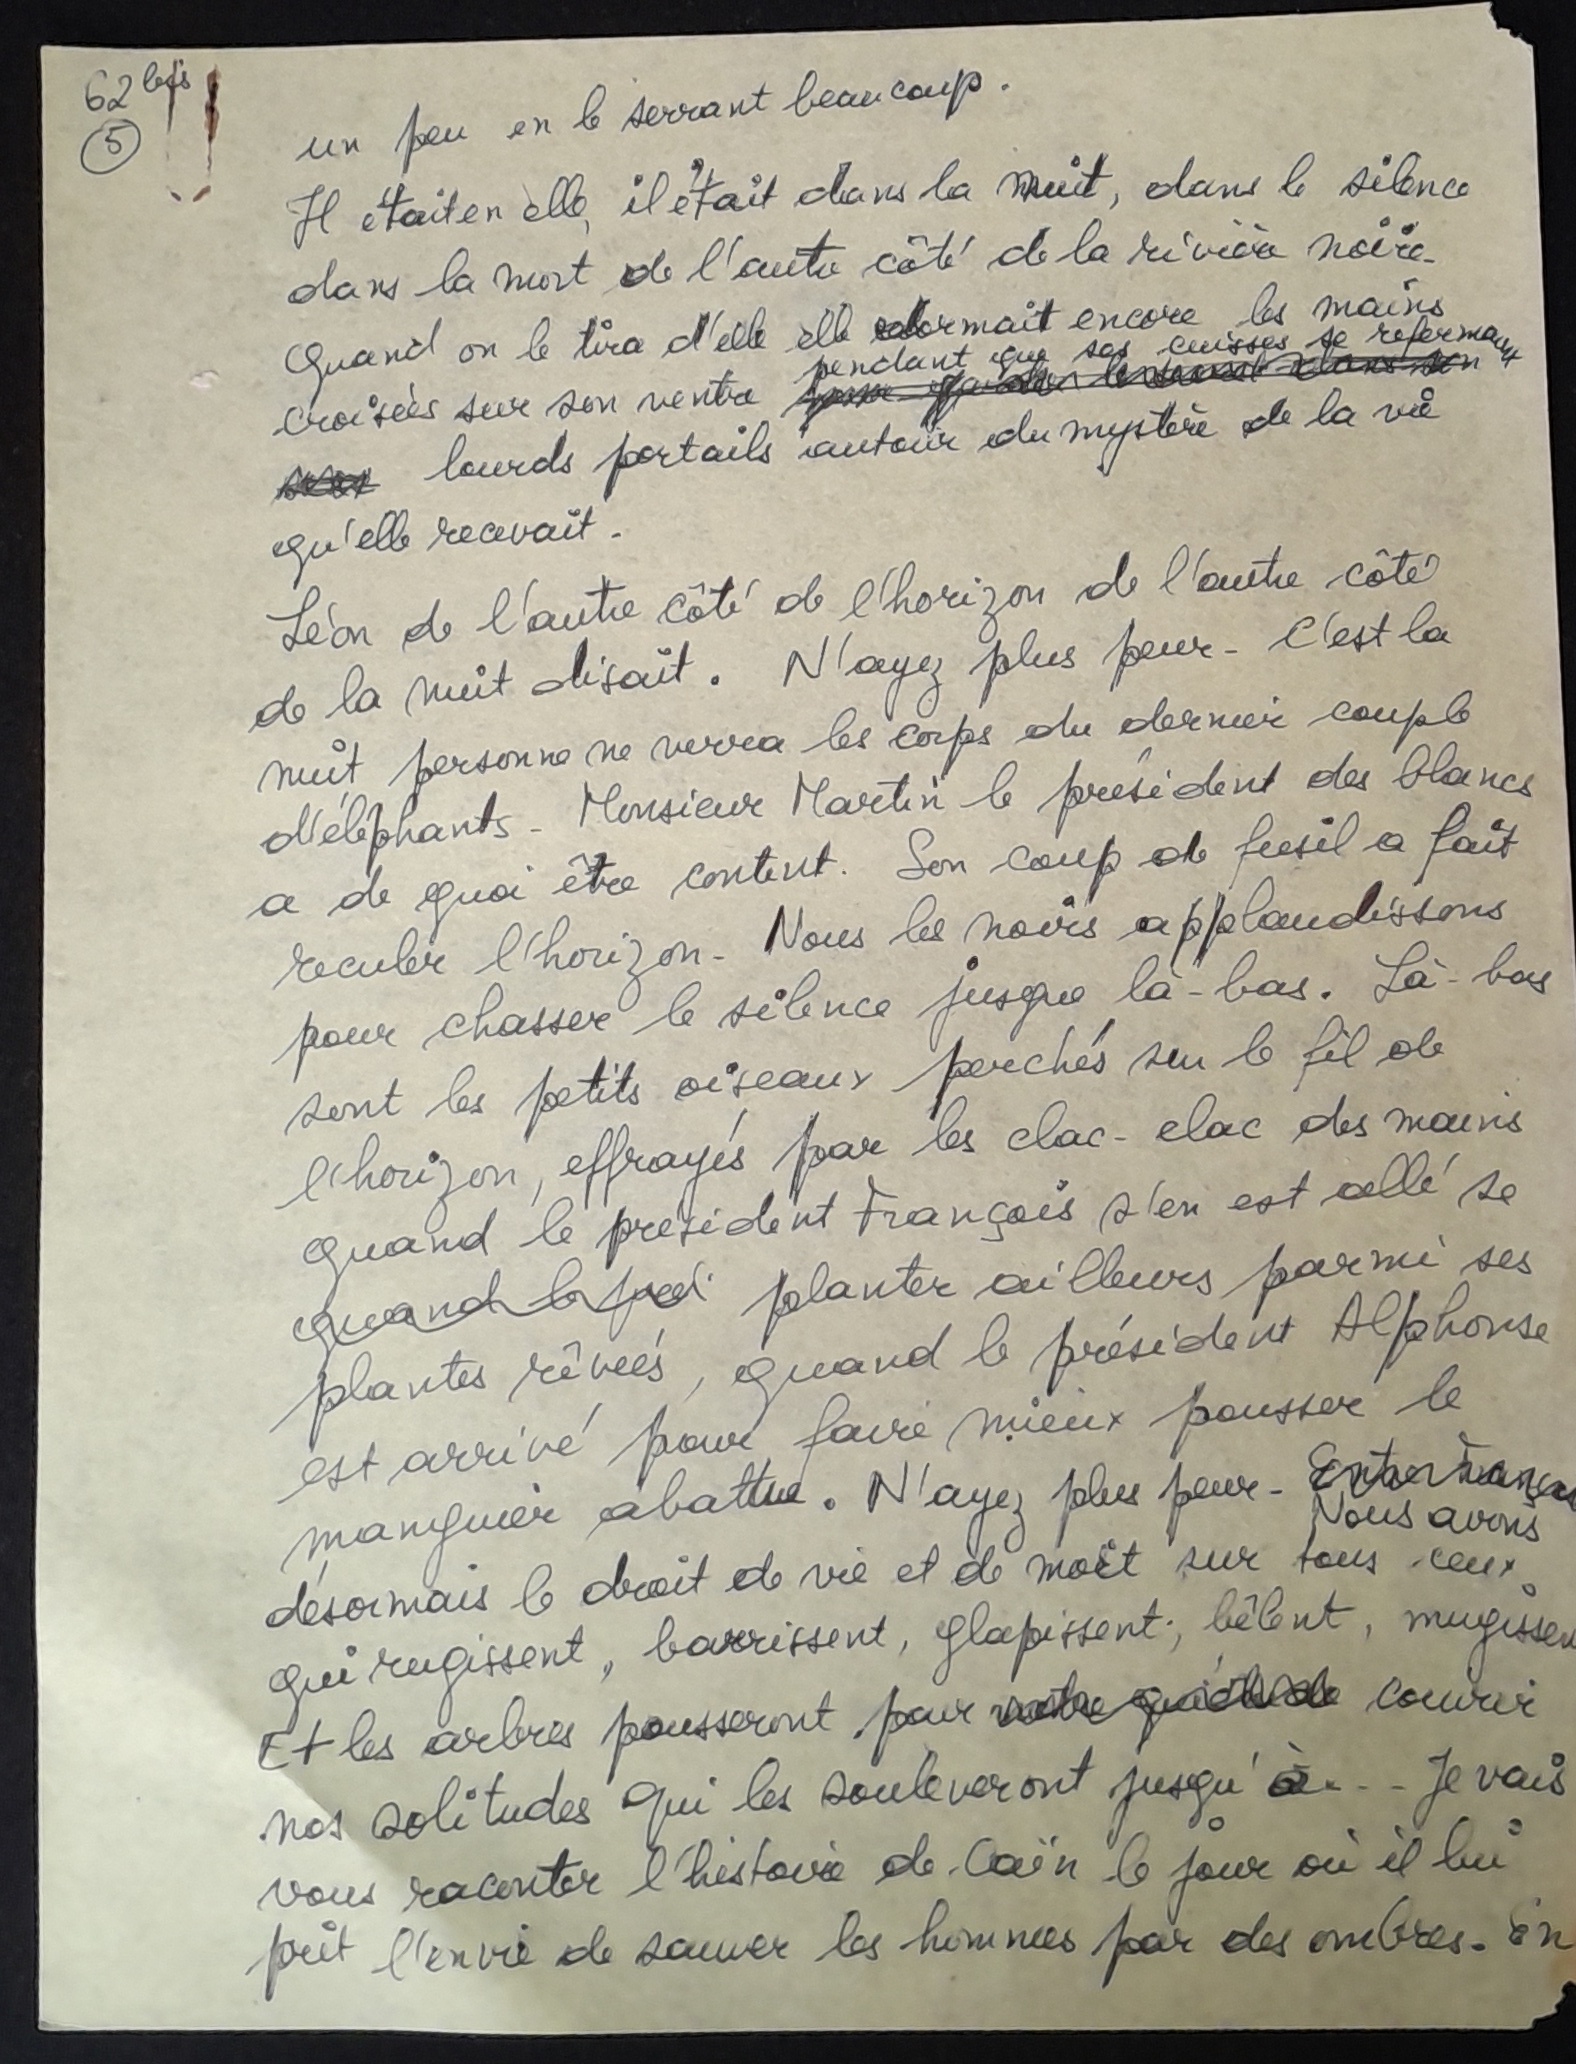 62 bis
5
un peu en le serrant beaucoup.
Il était en elle, il était dans la nuit, dans le silence
dans la mort de l'autre côté de la rivière noire.
Quand on le tira d'elle elle dormait encore les mains
pendant que ses cuisses se refermaient
croisées sur son ventre
lourds portails autour du mystère de la vie
qu'elle recevait.
Léon de l'autre côté de l'horizon de l'autre côté
de la nuit disait. N'ayez plus peur. C'est la
nuit personne ne verra les corps du dernier couple
d'éléphants. Monsieur Martin le président des blancs
a de quoi être content. Son coup de fusil a fait
reculer l'horizon. Nous les noirs applaudissons
pour chasser le silence jusque là-bas. Là-bas
sont les petits oiseaux perchés sur le fil de
l'horizon, effrayés par les clac-clac des mains
quand le président François s'en est allé se
quand le prési planter ailleurs parmi ses
plantes rêvées, quand le président Alphonse
est arrivé pour faire mieux pousser le
manguier abattu. N'ayez plus peur.
Nous avons
désormais le droit de vie et de mort sur tous ceux
qui rugissent, barrissent, glapissent, bêlent, mugissent
Et les arbres pousseront pour couvrir
nos solitudes qui les soulèveront jusqu'à... Je vais
vous raconter l'histoire de Caïn le jour où il lui
prit l'envie de sauver les hommes par des ombres. En